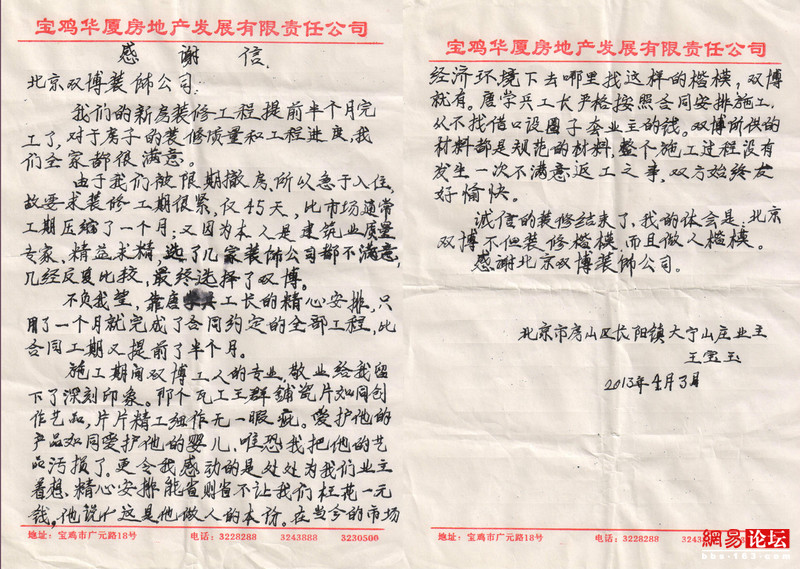 宝鸡华厦房地产发展有限责任公司
感 谢 信.
北京双博装饰公司:
我们的新房装修工程提前半个月完
工了,对于房子的装修质量和工程进度,我
们全家都很满意。
由于我们被限期撤房,所以急于入住,
故要求装修工期很紧,仅45天,比市场通常
工期压缩了一个月;又因为本人是建筑业质量
专家、精益求精,选了几家装饰公司都不满意,
几经反复比较,最终选择了双博。
不负我望,靠唐学兵工长的精心安排,只
用了一个月就完成了合同约定的全部工程,此
合同工期又提前了半个月。
施工期间双博工人的专业、敬业给我留
下了深刻印象。那个瓦工王群铺瓷片如同创
作艺品,片片精工细作无一暇疵。爱护他的
产品如同爱护他的婴儿,唯恐我把他的艺
品污损了,更令我感动的是处处为我们业主
着想、精心安排能省则省不让我们枉花一元
钱,他说:这是他做人的本份。在当今的市场
地址:宝鸡市广元路18号 电话:3228288 3243888 3230500
宝鸡华厦房地产发展有限责任公司
经济环境下去哪里找这样的楷模,双博
就有。唐学兵工长严格按照合同安排施工,
从不找借口设圈子套业主的钱。双博所供的
材料都是规范的材料,整个施工过程没有
发生一次不满意返工之事,双方始终友
好愉快。
诚信的装修结束了,我的体会是:北京
双博不但装修楷模而且做人楷模。
感谢北京双博装饰公司。
北京市房山区长阳镇大宁山庄业主
王宝玉
2013年4月3日
地址:宝鸡市广元路18号 电话:3228288
网易论坛
bbs.163.com